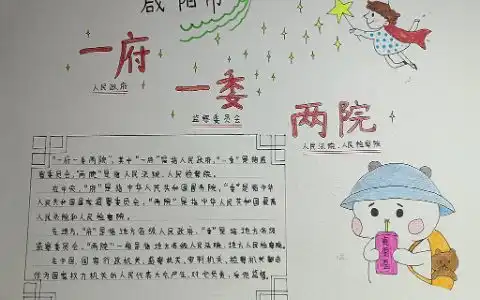 咸阳市
一府
人民政府
一委
监察委员会
两院
人民法院、人民检察院
"一府一委两院",其中"一府"是指人民政府,"一委"是指监
察委员会,"两院"是指人民法院、人民检察院。
在中央,"府"是指中华人民共和国国务院,"委"是指中华
人民共和国国家监察委员会,"两院"是指中华人民共和国最高
人民法院和人民检察院。
在地方,"府"是指地方各级人民政府,"委"是指地方各级
监察委员会,"两院"一般是指地方各级人民法院,地方人民检察院。
在中国,国家行政机关、监察机关、审判机关、检察机关都由
作为国家权力机关的人民代表大会产生,对它负责,受它监督。